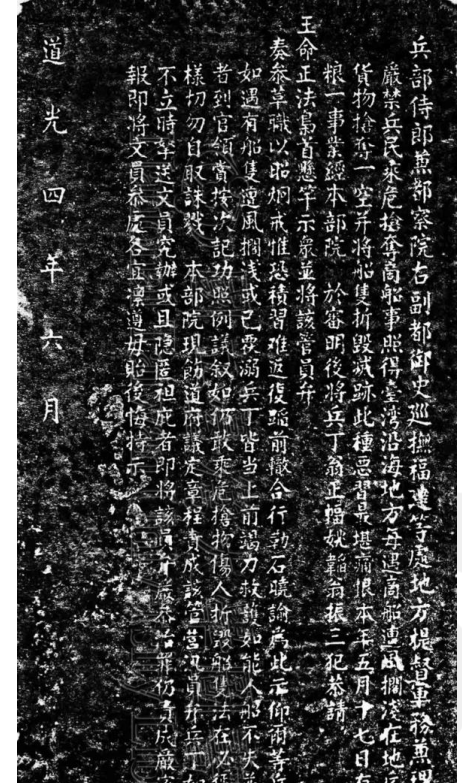 兵部侍郎兼都察院右副都御史巡撫福建等處地方提督軍務兼理
嚴禁兵民乘危搶奪商船事照得臺灣沿海地方每遇商船遭風擱淺在地
貨物搶奪一空并將船隻折毀滅跡此種惡習最堪痛恨本年五月十七日有
糧一事業經本部院 於審明後將兵丁翁正幅姚韜翁振三犯恭請
王命正法梟首懸竿示眾並將該管員弁
奏參革職以昭炯戒惟恐積習難返復蹈前轍合行勒石曉諭為此示仰
如遇有船隻遭風擱淺或已覆溺兵丁皆當上前竭力救護如能人船不失
者到官領賞按次記功照例議敘如仍敢乘危搶掠傷人折毀船隻法在必
樣切勿自取誅戮 本部院現飭道府議定章程責成該管營汛員弁兵丁如
不立時拏送文員究辦或且隱匿袒庇者即將該員弁嚴參治罪仍責成嚴
報即將文員參處各宜凜遵毋貽後悔特示
道光四年六月